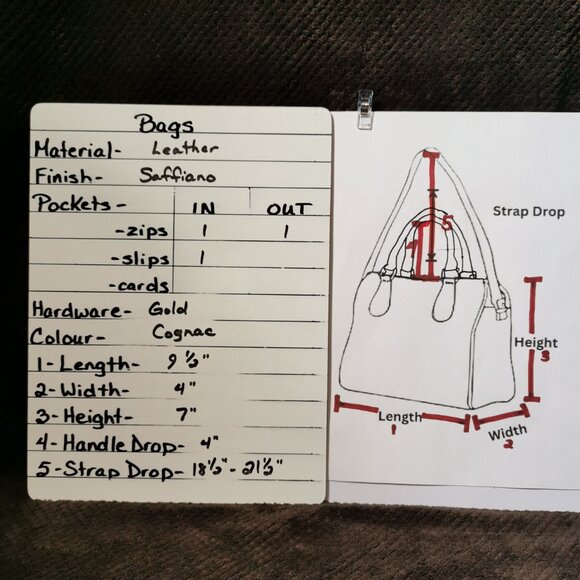 Bags
Material- Leather
Finish- Saffiano
Pockets- IN OUT
-zips 1 1
-slips 1
-cards
Hardware- Gold
Colour- Cognac
1-Length- 9 1/2"
2-Width- 4"
3-Height- 7"
4-Handle Drop- 4"
5-Strap Drop- 18 1/2" - 21 1/2"
Strap Drop
5
4
Height
3
Length
1
Width
2